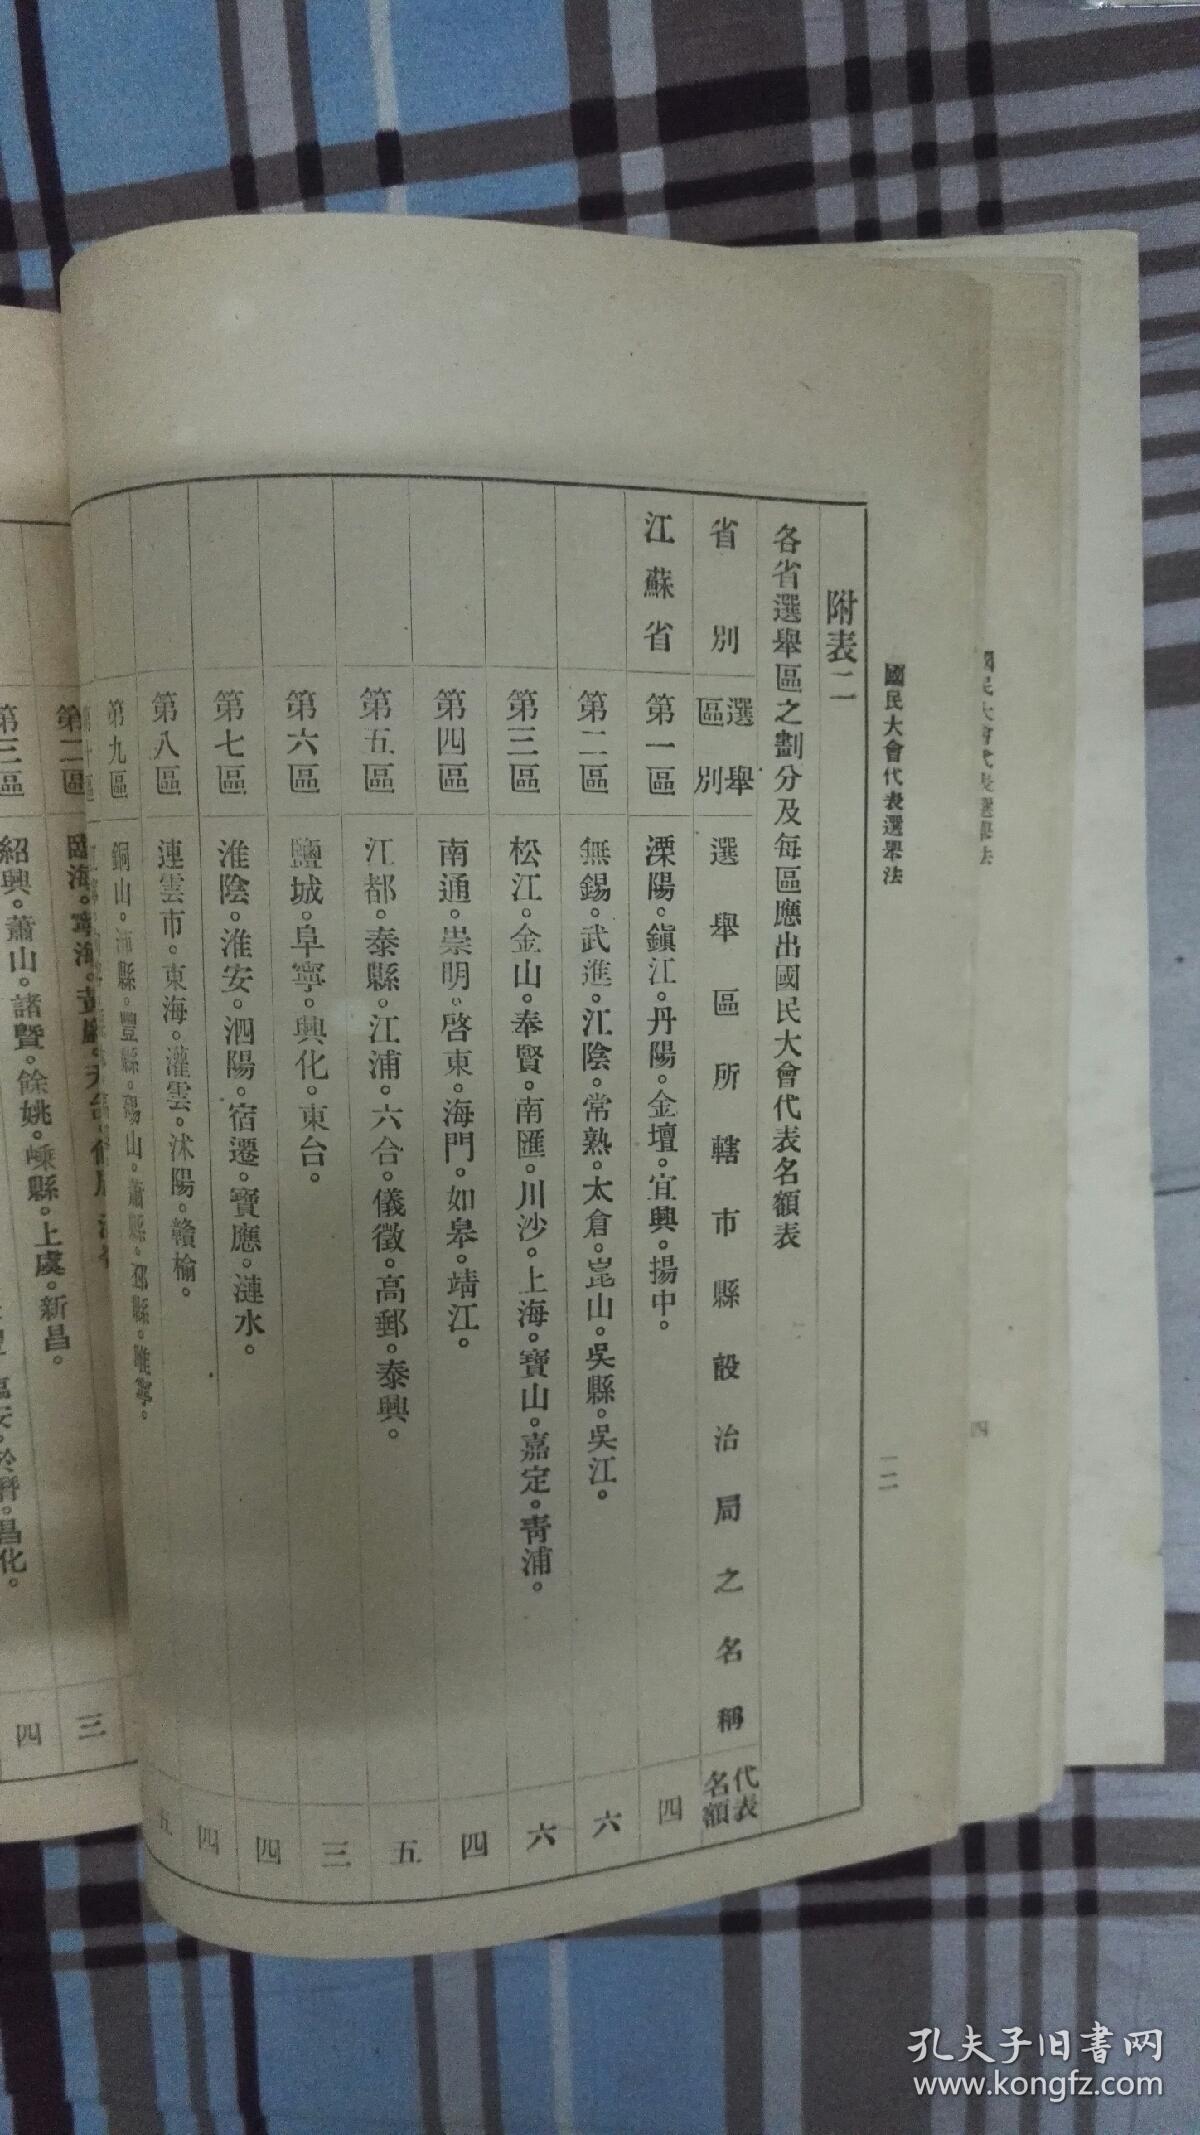 國民大會代表選舉法
四
國民大會代表選舉法
二二
附表二
各省選舉區之劃分及每區應出國民大會代表名額表
省別 選舉區別 選舉區所轄市縣設治局之名稱 代表名額
江蘇省 第一區 溧陽。鎮江。丹陽。金壇。宜興。揚中。 四
第二區 無錫。武進。江陰。常熟。太倉。崑山。吳縣。吳江。 六
第三區 松江。金山。奉賢。南匯。川沙。上海。寶山。嘉定。青浦。 六
第四區 南通。崇明。啓東。海門。如皋。靖江。 四
第五區 江都。泰縣。江浦。六合。儀徵。高郵。泰興。 五
第六區 鹽城。阜寧。興化。東台。 三
第七區 淮陰。淮安。泗陽。宿遷。寶應。漣水。 四
第八區 連雲市。東海。灌雲。沭陽。贛榆。 四
第九區 銅山。沛縣。豐縣。碭山。蕭縣。邳縣。睢寧。 五
第十區
第二區 臨海。寧海。黃巖。天台。 三
第三區 紹興。蕭山。諸暨。餘姚。嵊縣。上虞。新昌。 四
臨安。於潛。昌化。
孔夫子旧书网
www.kongfz.com